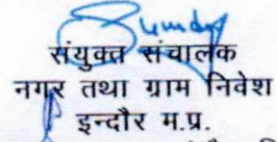 संयुक्त संचालक
नगर तथा ग्राम निवेश
इन्दौर म.प्र.